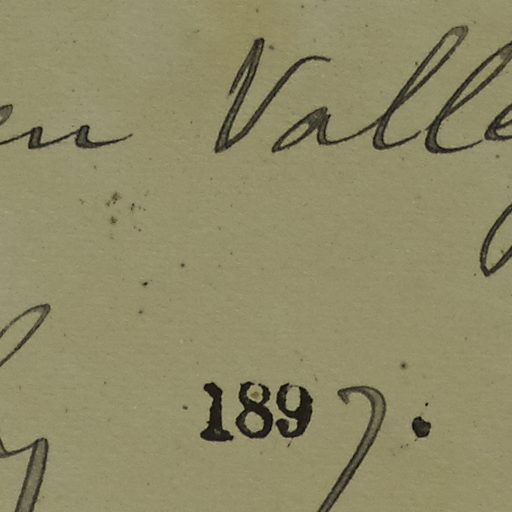 en Valle
y 1897.